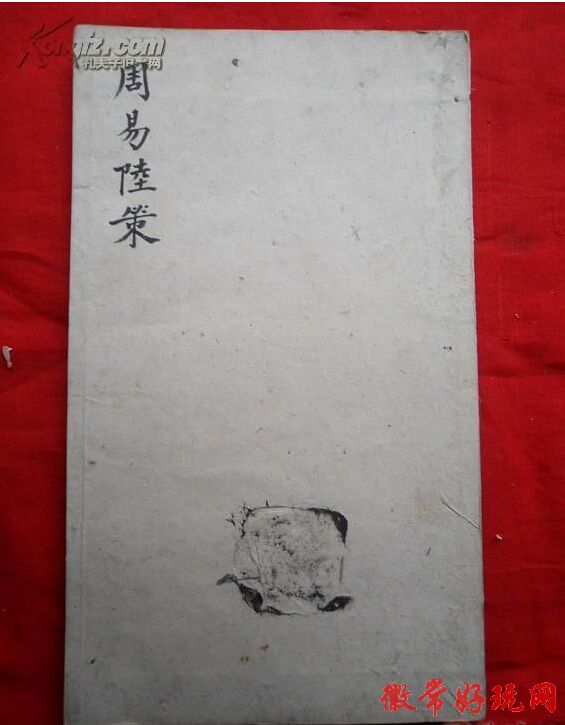 Kongfz.com
孔夫子旧书网
周易陸策
徽常好玩网